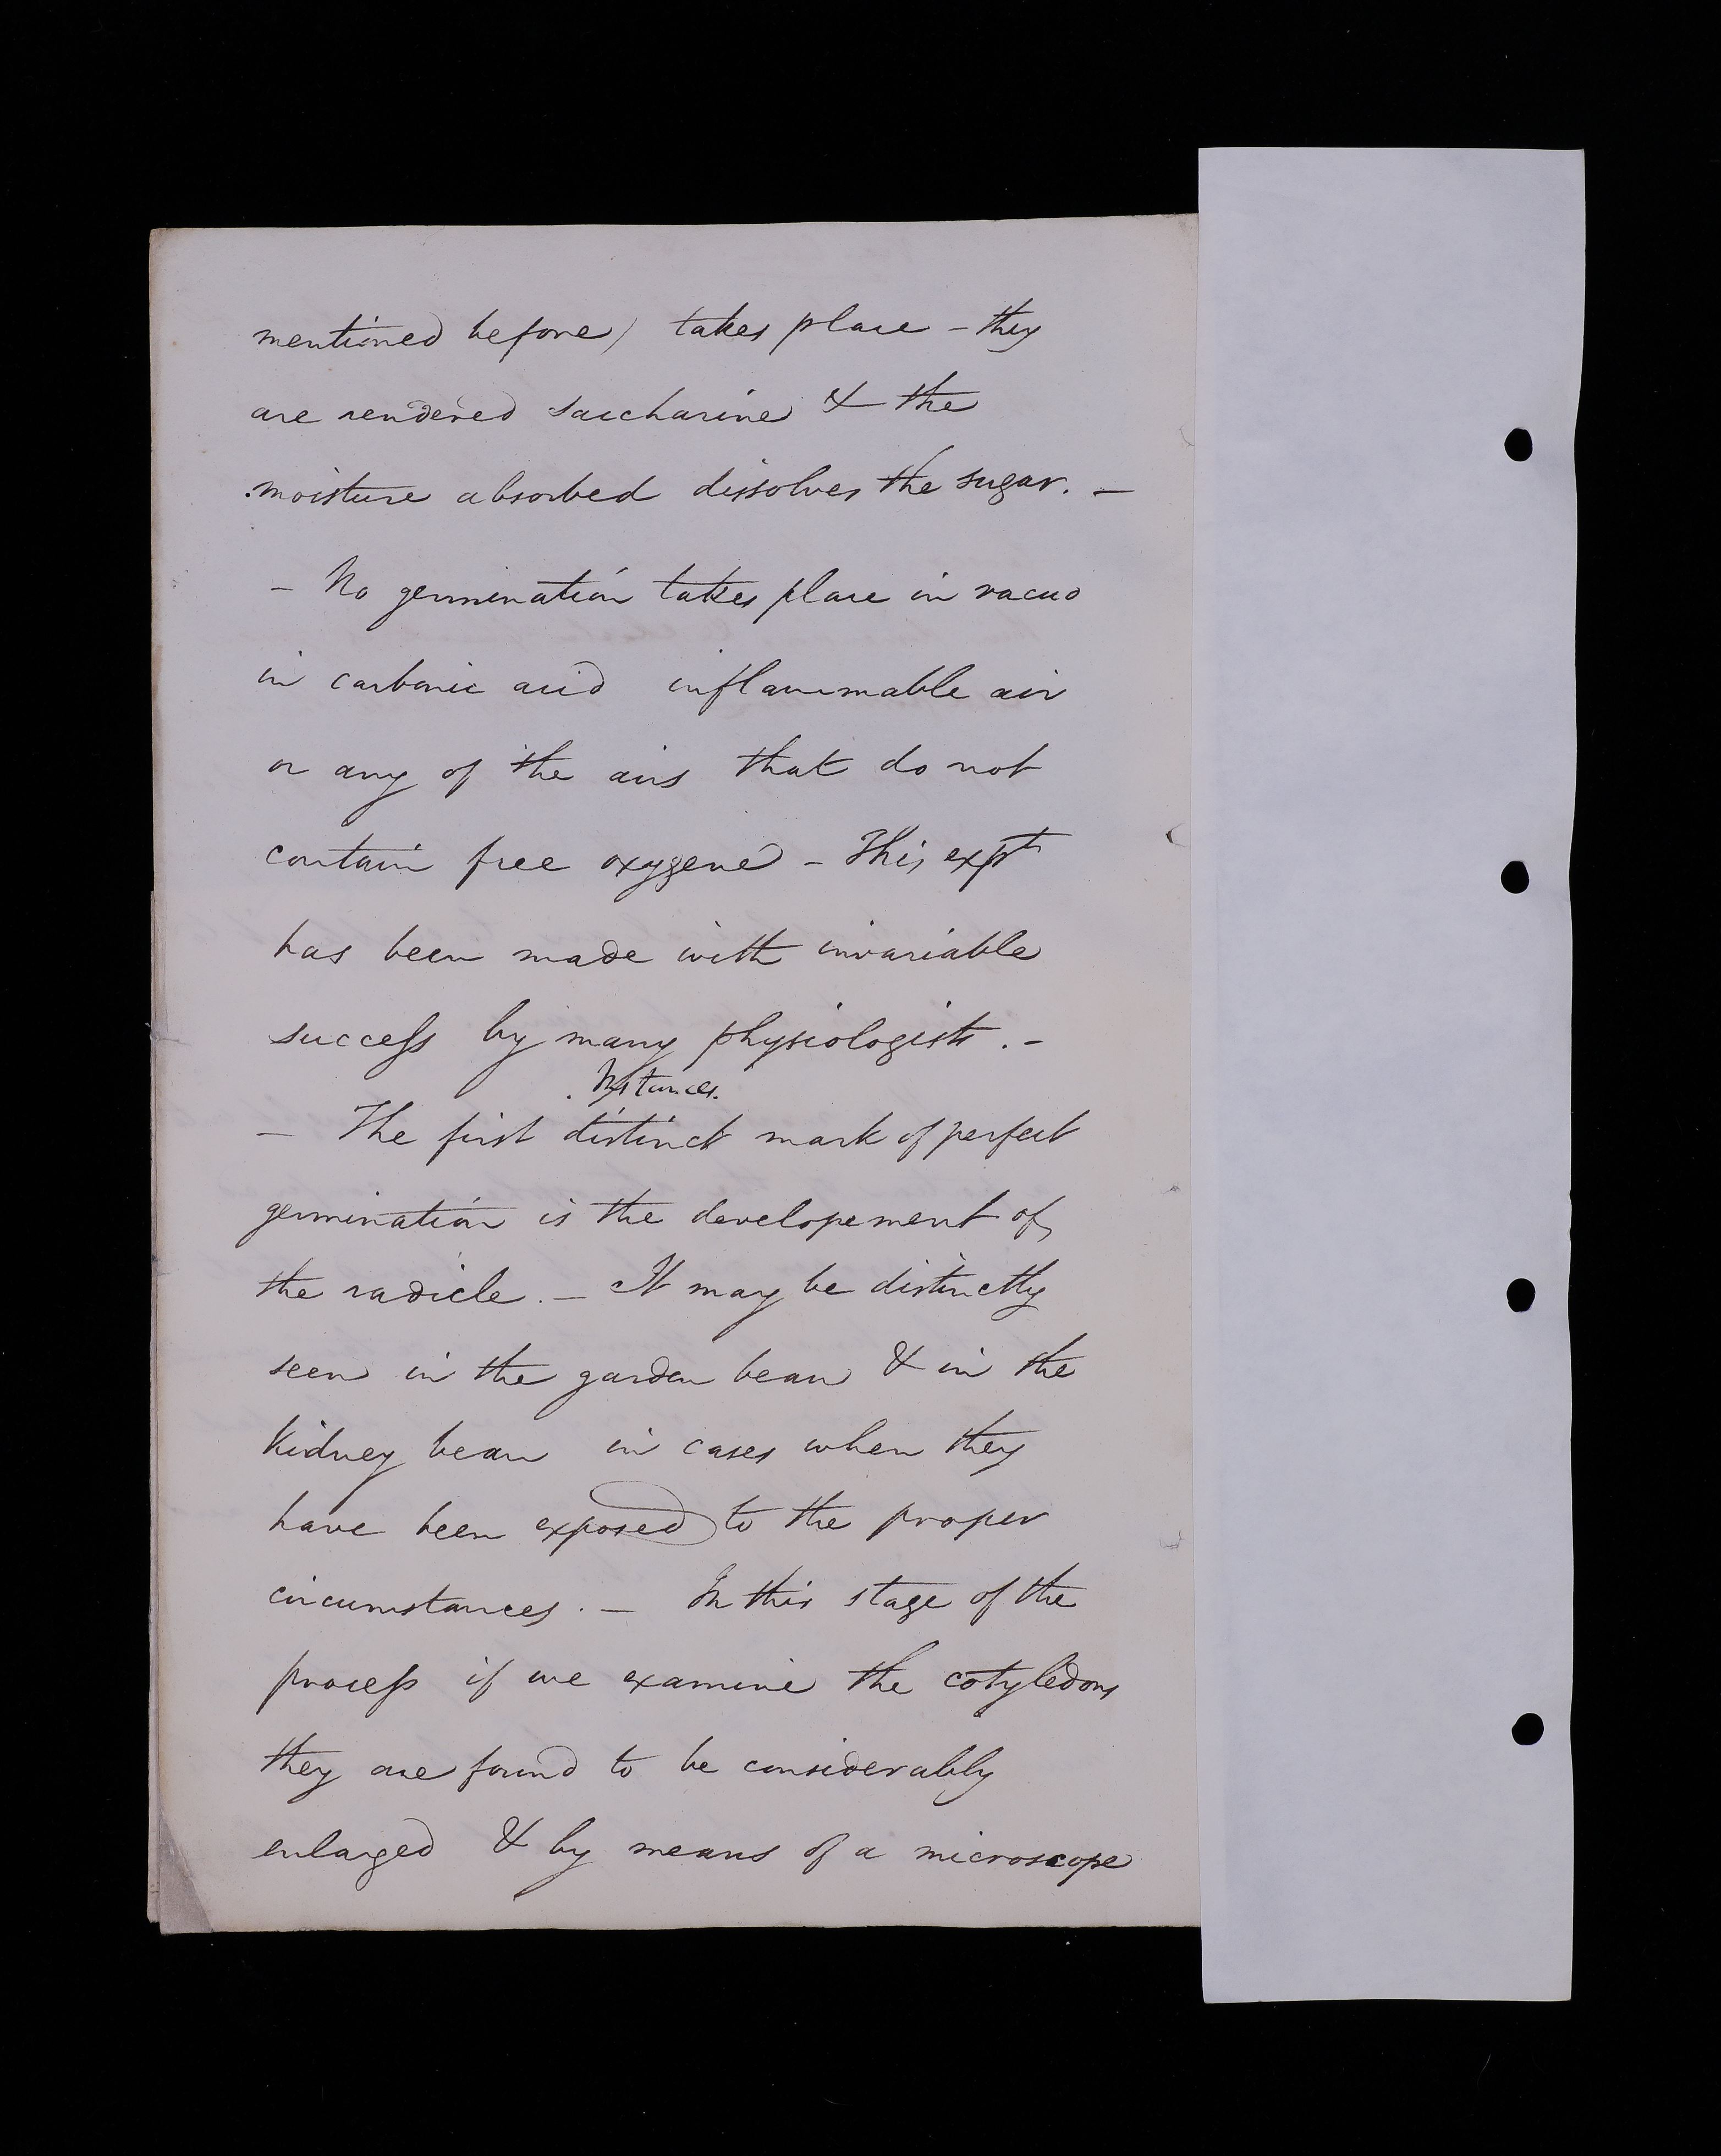 mentioned before) takes place – they
are rendered saccharine & the
moisture absorbed dissolves the sugar. –
– No germination takes place in vacuo
in carbonic acid inflammable air
or any of the airs that do not
contain free oxygene – This, expt
has been made with invariable
success by many physiologists. –
. Instances.
– The first distinct mark of perfect
germination is the developement of
the radicle. – It may be distinctly
seen in the garden bean & in the
kidney bean in cases when they
have been exposed to the proper
circumstances. – In this stage of the
process if we examine the cotyledons
they are found to be considerably
enlarged & by means of a microscope